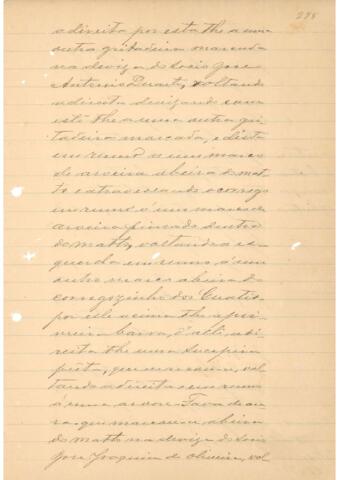 298
a direita por esta the a uma
outra gritadeira marcada
na deviza do Socio José
Antonio Duarte, voltando
a direita devizando com
este the a uma outra gri-
tadeira marcada, e desta
em rumo a um marco
de aroeira a beira do mat-
to e atravessando o corrego
em rumo á um marco de
aroeira fincado dentro
do matto, voltando a es-
querda em rumo á um
outro marco a beira do
corregozinho dos
por elle acima the a pri-
meira barra, d'alli a di-
reita the uma Sucupira
preta, que se marcou, vol-
tando a direita em rumo
á uma arvore Fava de
que marcou-se a beira
do matto na deviza do Socio
José Joaquim de Oliveira, vol